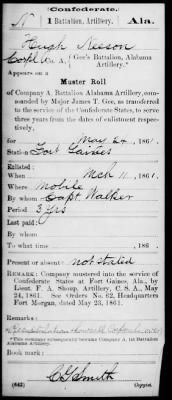 (Confederate.)
N 1 Battalion, Artillery. Ala.
Hugh Neeson
Corpl, Co. A, Gee's Battalion, Alabama Artillery.*
Appears on a
Muster Roll
of Company A, Battalion Alabama Artillery, commanded by Major James T. Gee, as transferred
to the service of the Confederate States, to serve
three years from the dates of enlistment respectively,
for May 24, 1861.
Station Fort Gaines
Enlisted:
When Mch 11, 1861.
Where Mobile
By whom Capt. Walker
Period 3 yrs
Last paid:
By whom
To what time , 186 .
Present or absent? not stated
REMARK: Company mustered into the service of
Confederate States at Fort Gaines, Ala., by
Lieut. F. A. Shoup, Artillery, C. S. A., May
24, 1861. See Orders No. 62, Headquarters
Fort Morgan, dated May 23, 1861.
Remarks:
*This company subsequently became Company A, 1st Battalion
Alabama Artillery.
Book mark:
(642) C. G. Smith
Copyist.